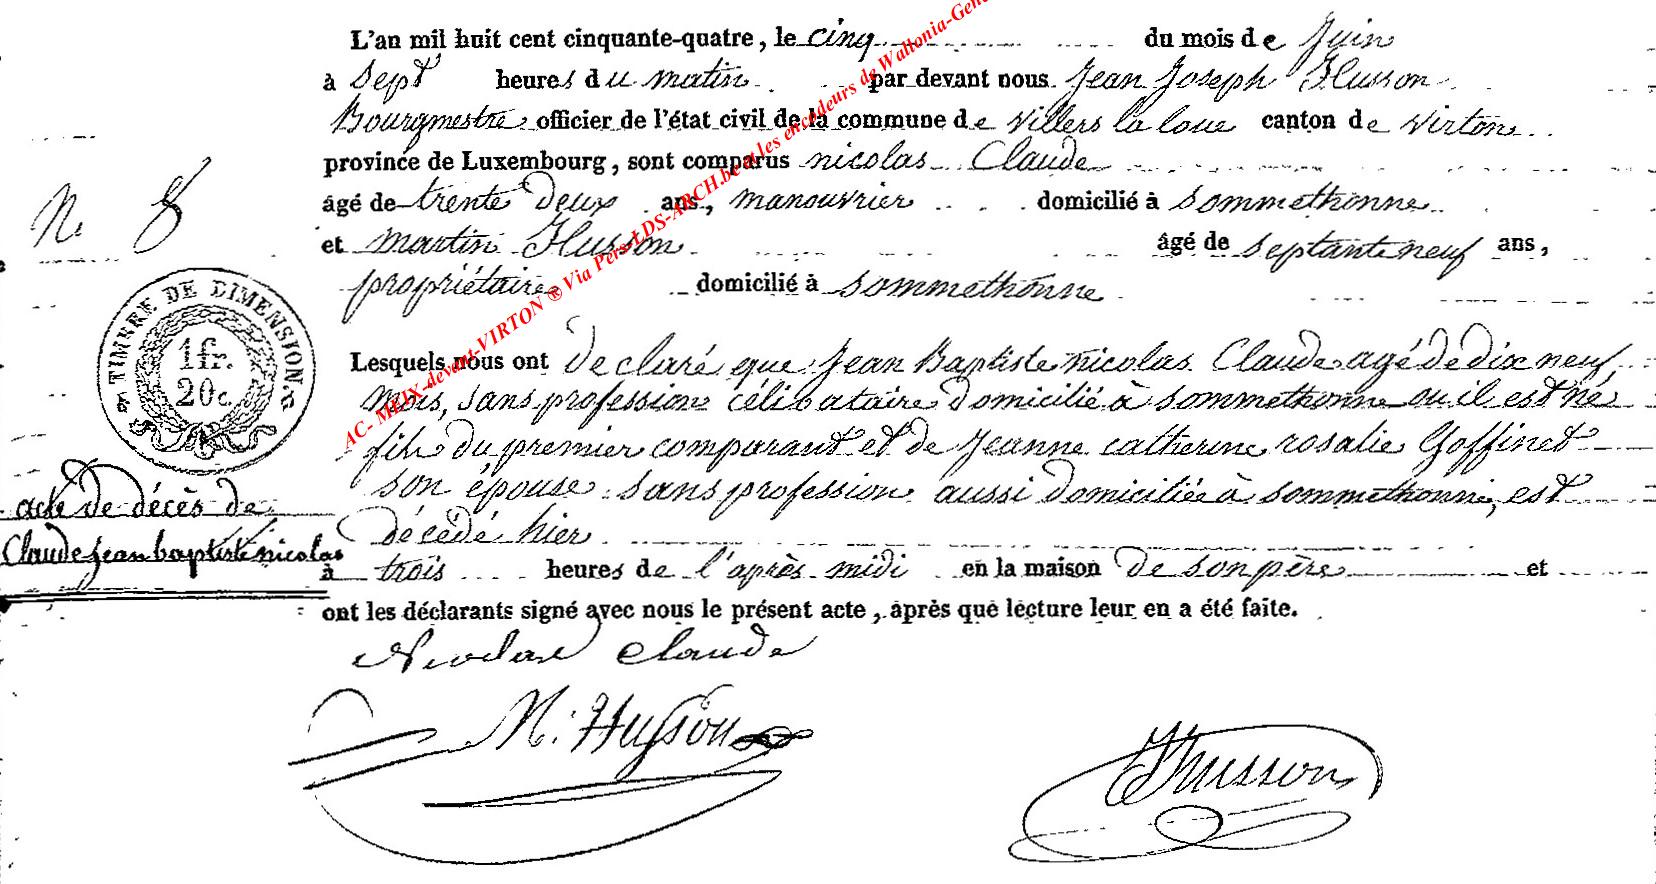 L'an mil huit cent cinquante-quatre, le cinq du mois de juin
à sept heures du matin par devant nous Jean Joseph Husson
Bourgmestre officier de l'état civil de la commune de Villers la loue canton de Virton
province de Luxembourg, sont comparus nicolas Claude
âgé de trente deux ans, manouvrier domicilié à Sommethonne
et martin Husson âgé de septante neuf ans,
propriétaire domicilié à Sommethonne
Lesquels nous ont declaré que Jean Baptiste nicolas Claude agé de dix neuf
mois, sans profession célibataire domicilié à Sommethonne ou il est né
fils du premier comparant et de Jeanne catherine rosalie Goffinet
son épouse sans profession aussi domiciliée à Sommethonne, est
décédé hier
à trois heures de l'après midi en la maison de son père et
ont les déclarants signé avec nous le présent acte, après que lecture leur en a été faite.
Nicolas Claude
M. Husson
JHusson
N. 8
TIMBRE DE DIMENSION.
1fr.
20c.
acte de décès de
Claude jean baptiste nicolas
AC- MEIX-devant-VIRTON ® Via Pers-LDS-ARCH.be et les encodeurs de Wallonia-Gen